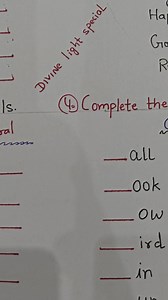 Ha
Go
R
Divine light special
ls.
4. Complete the
ral
__all
__ook
__ow
__ird
__in